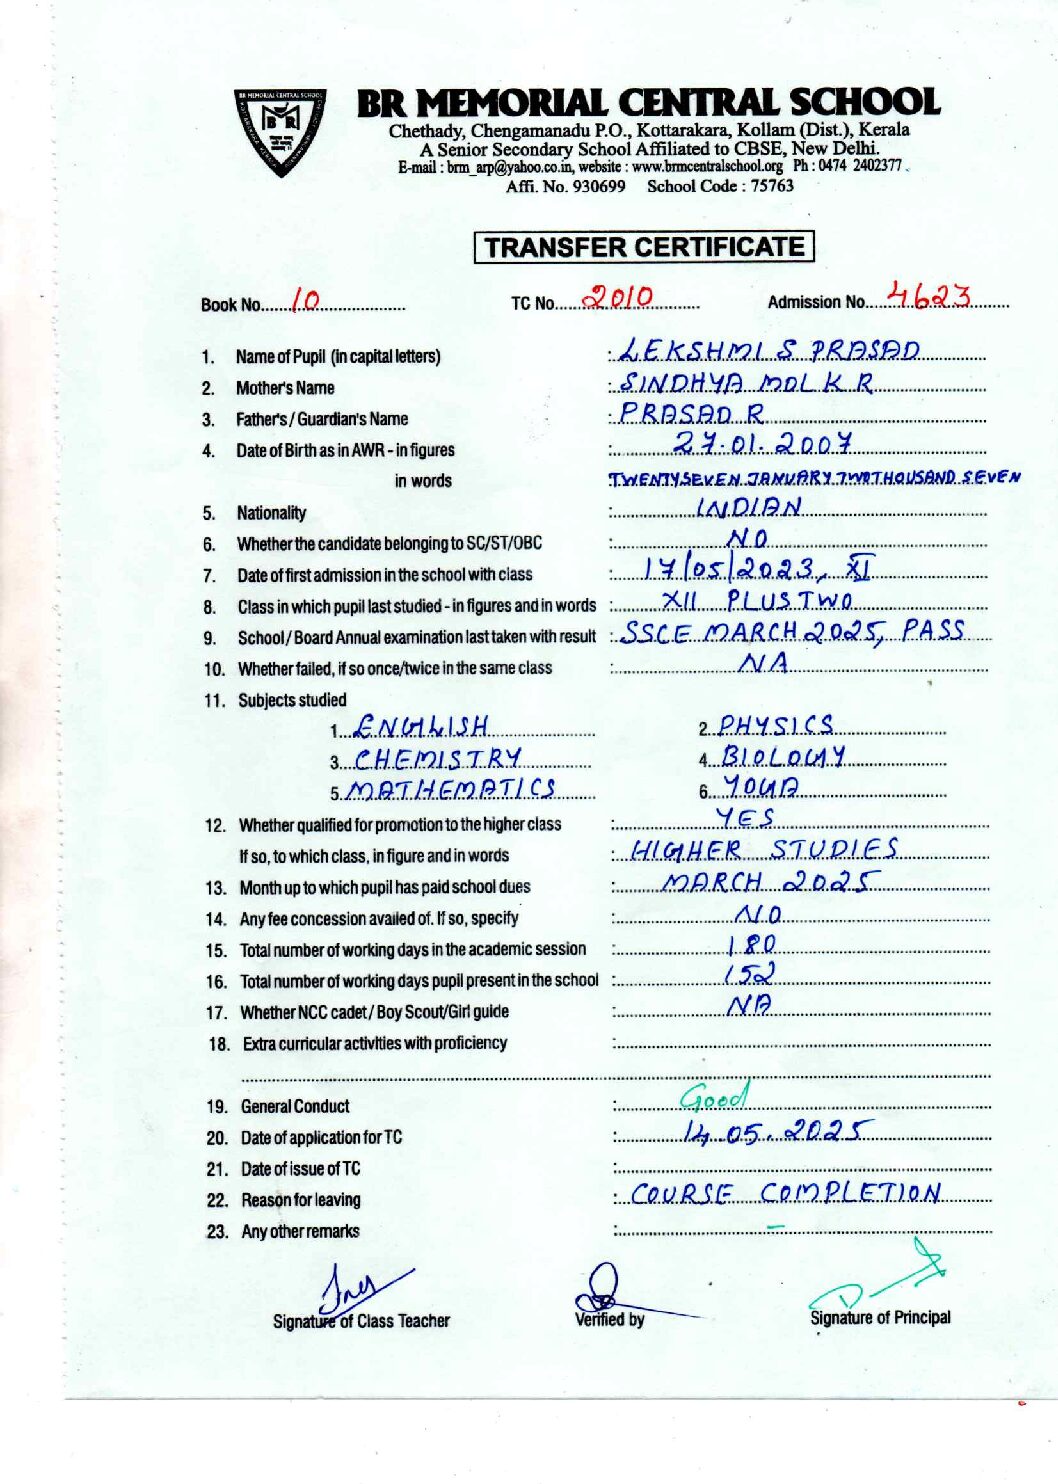 BR MEMORIAL CENTRAL SCHOOL
BR MEMORIAL CENTRAL SCHOOL
Chethady, Chengamanadu P.O., Kottarakara, Kollam (Dist.), Kerala
A Senior Secondary School Affiliated to CBSE, New Delhi.
E-mail : brm_arp@yahoo.co.in, website : www.brmcentralschool.org Ph : 0474 2402377 .
Affi. No. 930699 School Code : 75763
TRANSFER CERTIFICATE
Book No. 10 TC No. 2010 Admission No. 4623
1. Name of Pupil (in capital letters) : LEKSHMI S PRASAD
2. Mother's Name : SINDHYA MOL K R
3. Father's / Guardian's Name : PRASAD R
4. Date of Birth as in AWR - in figures : 27.01.2007
in words : TWENTY SEVEN JANUARY TWO THOUSAND SEVEN
5. Nationality : INDIAN
6. Whether the candidate belonging to SC/ST/OBC : NO
7. Date of first admission in the school with class : 17/05/2023, XI
8. Class in which pupil last studied - in figures and in words : XII PLUS TWO
9. School / Board Annual examination last taken with result : SSCE MARCH 2025, PASS
10. Whether failed, if so once/twice in the same class : NA
11. Subjects studied
1. ENGLISH 2. PHYSICS
3. CHEMISTRY 4. BIOLOGY
5. MATHEMATICS 6. YOGA
12. Whether qualified for promotion to the higher class : YES
If so, to which class, in figure and in words : HIGHER STUDIES
13. Month up to which pupil has paid school dues : MARCH 2025
14. Any fee concession availed of. If so, specify : NO
15. Total number of working days in the academic session : 180
16. Total number of working days pupil present in the school : 152
17. Whether NCC cadet / Boy Scout/Girl guide : NA
18. Extra curricular activities with proficiency :
19. General Conduct : Good
20. Date of application for TC : 14.05.2025
21. Date of issue of TC :
22. Reason for leaving : COURSE COMPLETION
23. Any other remarks : –
Signature of Class Teacher Verified by Signature of Principal